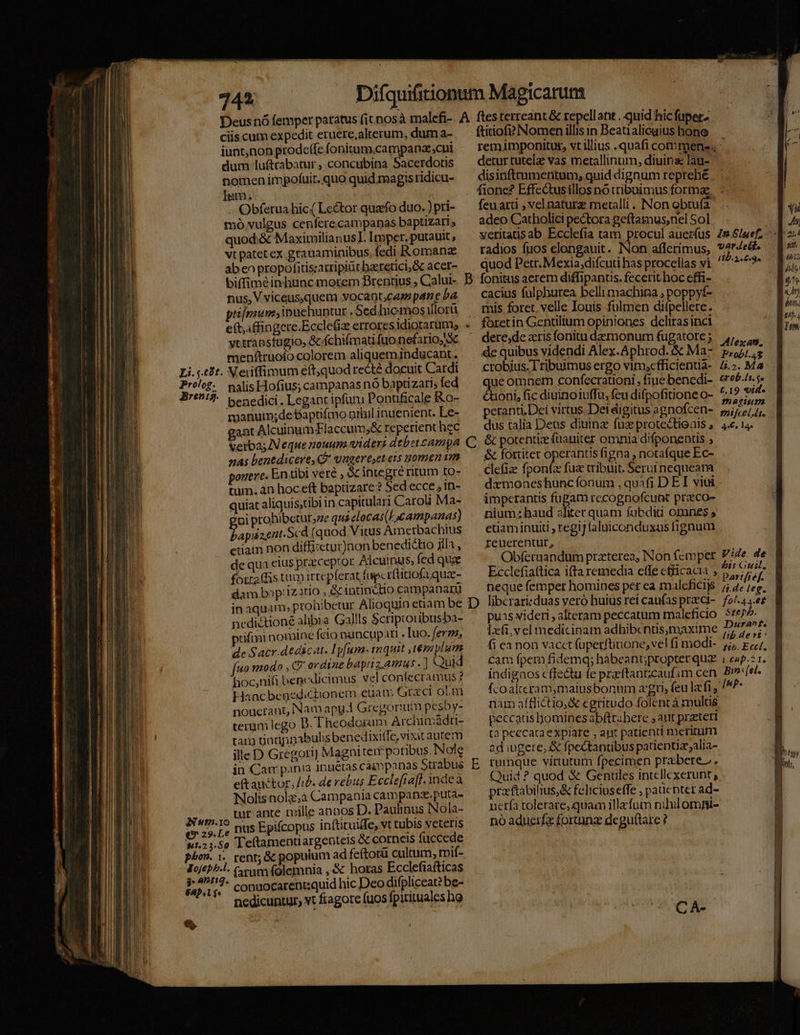 742 Disquisitionum Magicarum
Deus nó semper paratus sit nos à malefi-
ciis cum expedit eruere, alterum, dum a-
iunt, non prodesse fonitum campanæ, cui
dum lustrabatur, concubina Sacerdotis
nomen imposuit. quo quid magis ridicu-
lum.
Obserua hic (Lector quæso duo.) pri-
mò vulgus censere campanas baptizari,
quod & Maximilianus I. Imper. putauit,
vt patet ex grauaminibus, sedi Romanæ
ab eo propositis: arripiūt hæretici, & acer-
bissimè in hunc morem Brentius, Calui-
nus, Viceus, quem vocant,
est, affingere. Ecclesiæ errores idiotarum,
vt transfugio, & schismati suo nefario, &
menstruoso colorem aliquem inducant.
Li. 5. cst. Verissimum est, quod rectè docuit Cardi
Prolog. nalis Hosius; campanas nō baptizari, sed
Brentij. benedici. Legant ipsum Pontificale Ro-
manum; de baptismo nihil inuenient. Le-
gant Alcuinum Flaccum, & reperient hec
verba; Neque nouum videri debet campa
nas benedicere, & vngere, et eis nomen im
ponere. En tibi verè, & integrè ritum to-
tum. an hoc est baptizare? Sed ecce, in-
quiat aliquis, tibi in capitulari Caroli Ma-
gni prohibetur, ne quis clocas (i. campanas)
bapizent. Sed (quod Vitus Amerbachius
etiam non diffitetur) non benedictio illa,
de qua eius præceptor Alcuinus, sed quæ
fortassis tum irrepserat superstitiosa quæ-
dam baptizatio, & intinctio campanarū
in aquam, prohibetur Alioquin etiam be
nedictionē alibi a Gallis Scriptoribus ba-
ptismi nomine scio nuncupari. Iuo. serm,
de Sacr. dedicat. Ipsum inquit templum
suo modo, & ordine baptizamus.] Quid
hoc, nisi benedicimus vel consecramus?
Hanc benedictionem etiam Græci olim
nouerant, Nam apud Gregorium presby-
terum lego B. Theodorum Archimādri-
tam tintinnabulis benedixisse, vixit autem
ille D Gregorij Magni temporibus. Nolę
in Campania inuētas campanas Strabus
est auctor, lib. de rebus Ecclesiast. inde à
Nolis nolæ, a Campania campanæ. puta-
tur ante mille annos D. Paulinus Nola-
Num. 10 nus Episcopus instituisse, vt tubis veteris
& 29. Le
ut. 23. Se Testamenti argenteis & corneis succede
phon. 1. rent; & populum ad festorū cultum, mis-
Ioseph. l. sarum solemnia, & horas Ecclesiasticas
3. antiq. conuocarent: quid hic Deo displiceat? be-
cap. 1. se nedicuntur, vt fragore suos spirituales ho
A stes terreant & repellant. quid hic supers
stitiosi? Nomen illis in Beati alicuius hono
rem imponitur, vt illius quasi commen-
detur tutelæ vas metallinum, diuinæ lau-
dis instrumentum, quid dignum reprehē
sione? Effectus illos nō tribuimus formæ
seu arti, vel naturæ metalli. Non obtusa
adeo Catholici pectora gestamus, nel Sol
veritatis ab Ecclesia tam procul auersus
radios suos elongauit. Non asserimus,
quod Petr. Mexia, discuti has procellas vi
B sonitus aerem dissipantis. fecerit hoc effi-
cacius sulphurea belli machina, poppys-
mis foret velle Iouis fulmen dispellere.
foret in Gentilium opiniones deliras inci
dere, de æris sonitu dæmonum fugatore;
de quibus videndi Alex. Aphrod. & Ma-
crobius. Tribuimus ergo vim, efficientiā-
que omnem consecrationi, siue benedi-
ctioni, sic diuino iussu, seu dispositione o-
peranti. Dei virtus. Dei digitus agnoscen-
dus talia Deus diuinæ suæ protectionis,
C & potentiæ suauiter omnia disponentis,
& fortiter operantis signa, notasque Ec-
clesiæ sponsæ suæ tribuit. Serui nequeam
dæmones hunc sonum, quasi DEI viui
imperantis fugam recognoscunt præco-
nium; haud aliter quam subditi omnes,
etiam inuiti, regij saluiconduxus signum
reuerentur,
Obseruandum præterea, Non semper
Ecclesiastica ista remedia esse efficacia,
neque semper homines per ea maleficijs
D liberari: duas verò huius rei causas præci-
puas videri, alteram peccatum maleficio
læsi, vel medicinam adhibentis, maxime
si ea non vacet superstitione, vel si modi-
cam spem fidemq; habeant; propter quæ
indignos effectu se præstant: causam cen
seo alteram, maius bonum ægri, seu læsi,
nam afflictio, & ęgritudo solent à multis
peccatis homines abstrahere, aut præteri
ta peccata expiare, aut patienti meritum
adiugere, & spectantibus patientiæ, alia-
E rumque virtutum specimen præbere.
Quid? quod & Gentiles intellexerunt,
præstabilius, & felicius esse, patienter ad-
uersa tolerare, quam illæsum nihilomni-
nò aduersæ fortunæ degustare?
Alexan.
Probl. 45
li. 2. Ma
magium
Vide de
bis Guil.
Parisies.
li. de leg.
fol. 44. et
Steph.
Durant.
lib. Eccl.
cap. 21.
Binsfel.
sup.
CA-